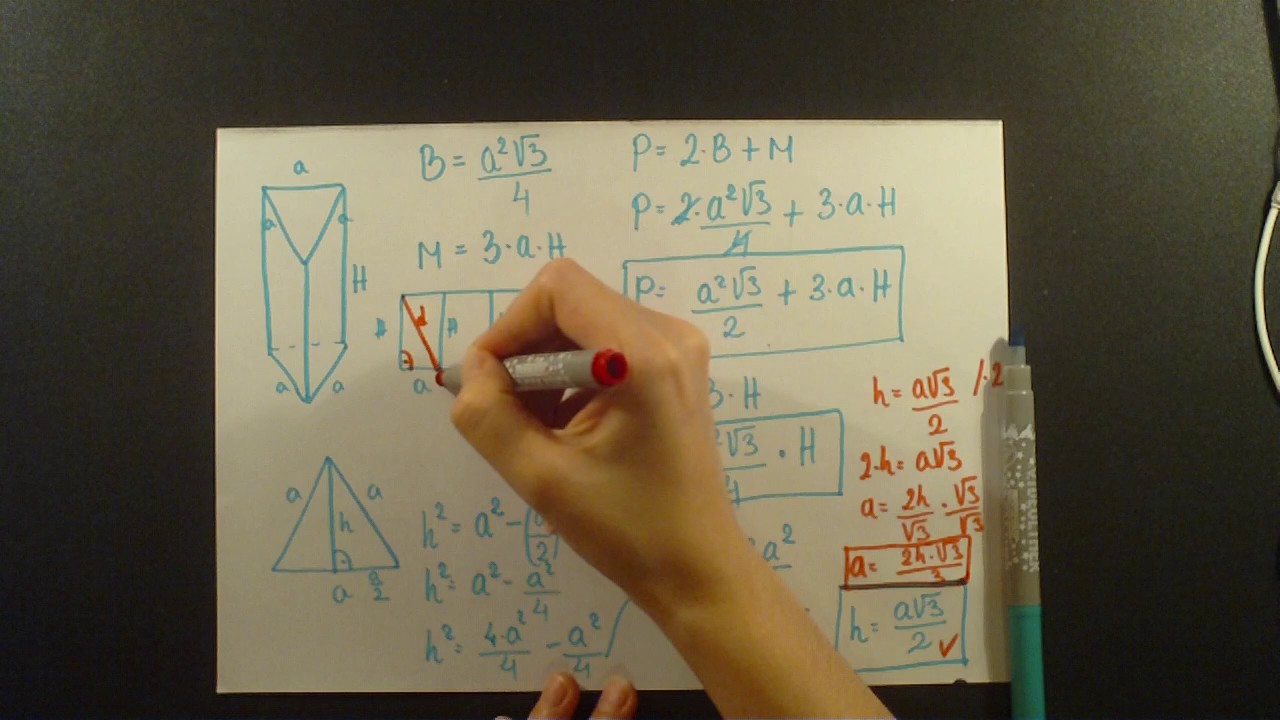 a
a a
H
a a
B = a²√3/4
M = 3·a·H
d
H
a
P = 2·B + M
P = 2·a²√3/4 + 3·a·H
P = a²√3/2 + 3·a·H
· H
√3 · H
a a
h
a a/2
h² = a² -
h² = a² - a²/4
h² = 4·a²/4 - a²/4
a²
h = a√3/2 /·2
2·h = a√3
a = 2h/√3 · √3/√3
a = 2h·√3/3
h = a√3/2 ✓